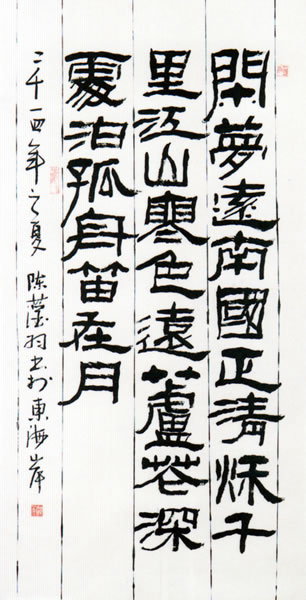 閑夢遠南國正清秋千
里江山寒色遠蘆花深
處泊孤舟笛在月
二千一四年之夏 陈羽书于東海岸